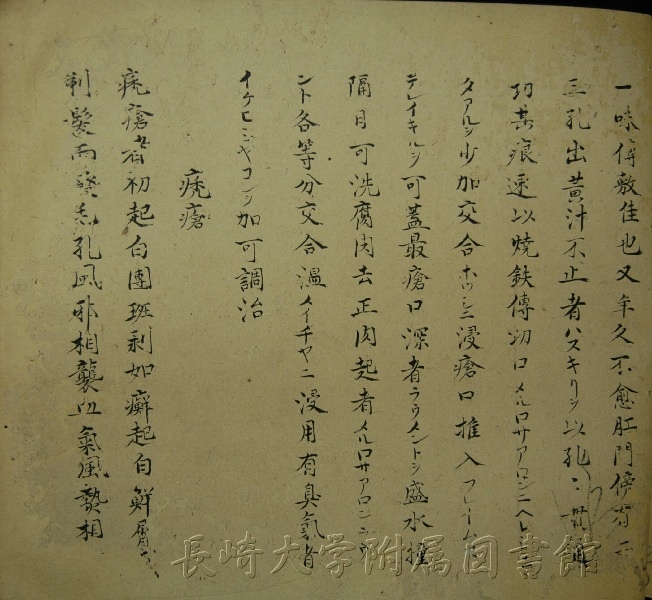 一味傳敷佳也又年久不愈肛門傍有二
三孔出黄汁不止者ハスキリヲ以孔ニ貫通
切其痕速以燒鉄傳切口メルロサアロンニヘレ
タアルヲ少加交合ホウシニ浸瘡口推入フレイム
テレイキルヲ可蓋最瘡口深者ララメントヲ盛水撞
隔日可洗腐肉去正肉起者メルロサアロン
ント各等分交合温メイチヤニ浸用有臭氣者
イケヒシヤコンヲ加可調治
禿瘡
禿瘡者初起白團班剥如癬起白鮮屑
判髮而發悉孔風邪相襲血氣風熱相
長崎大学附属図書館